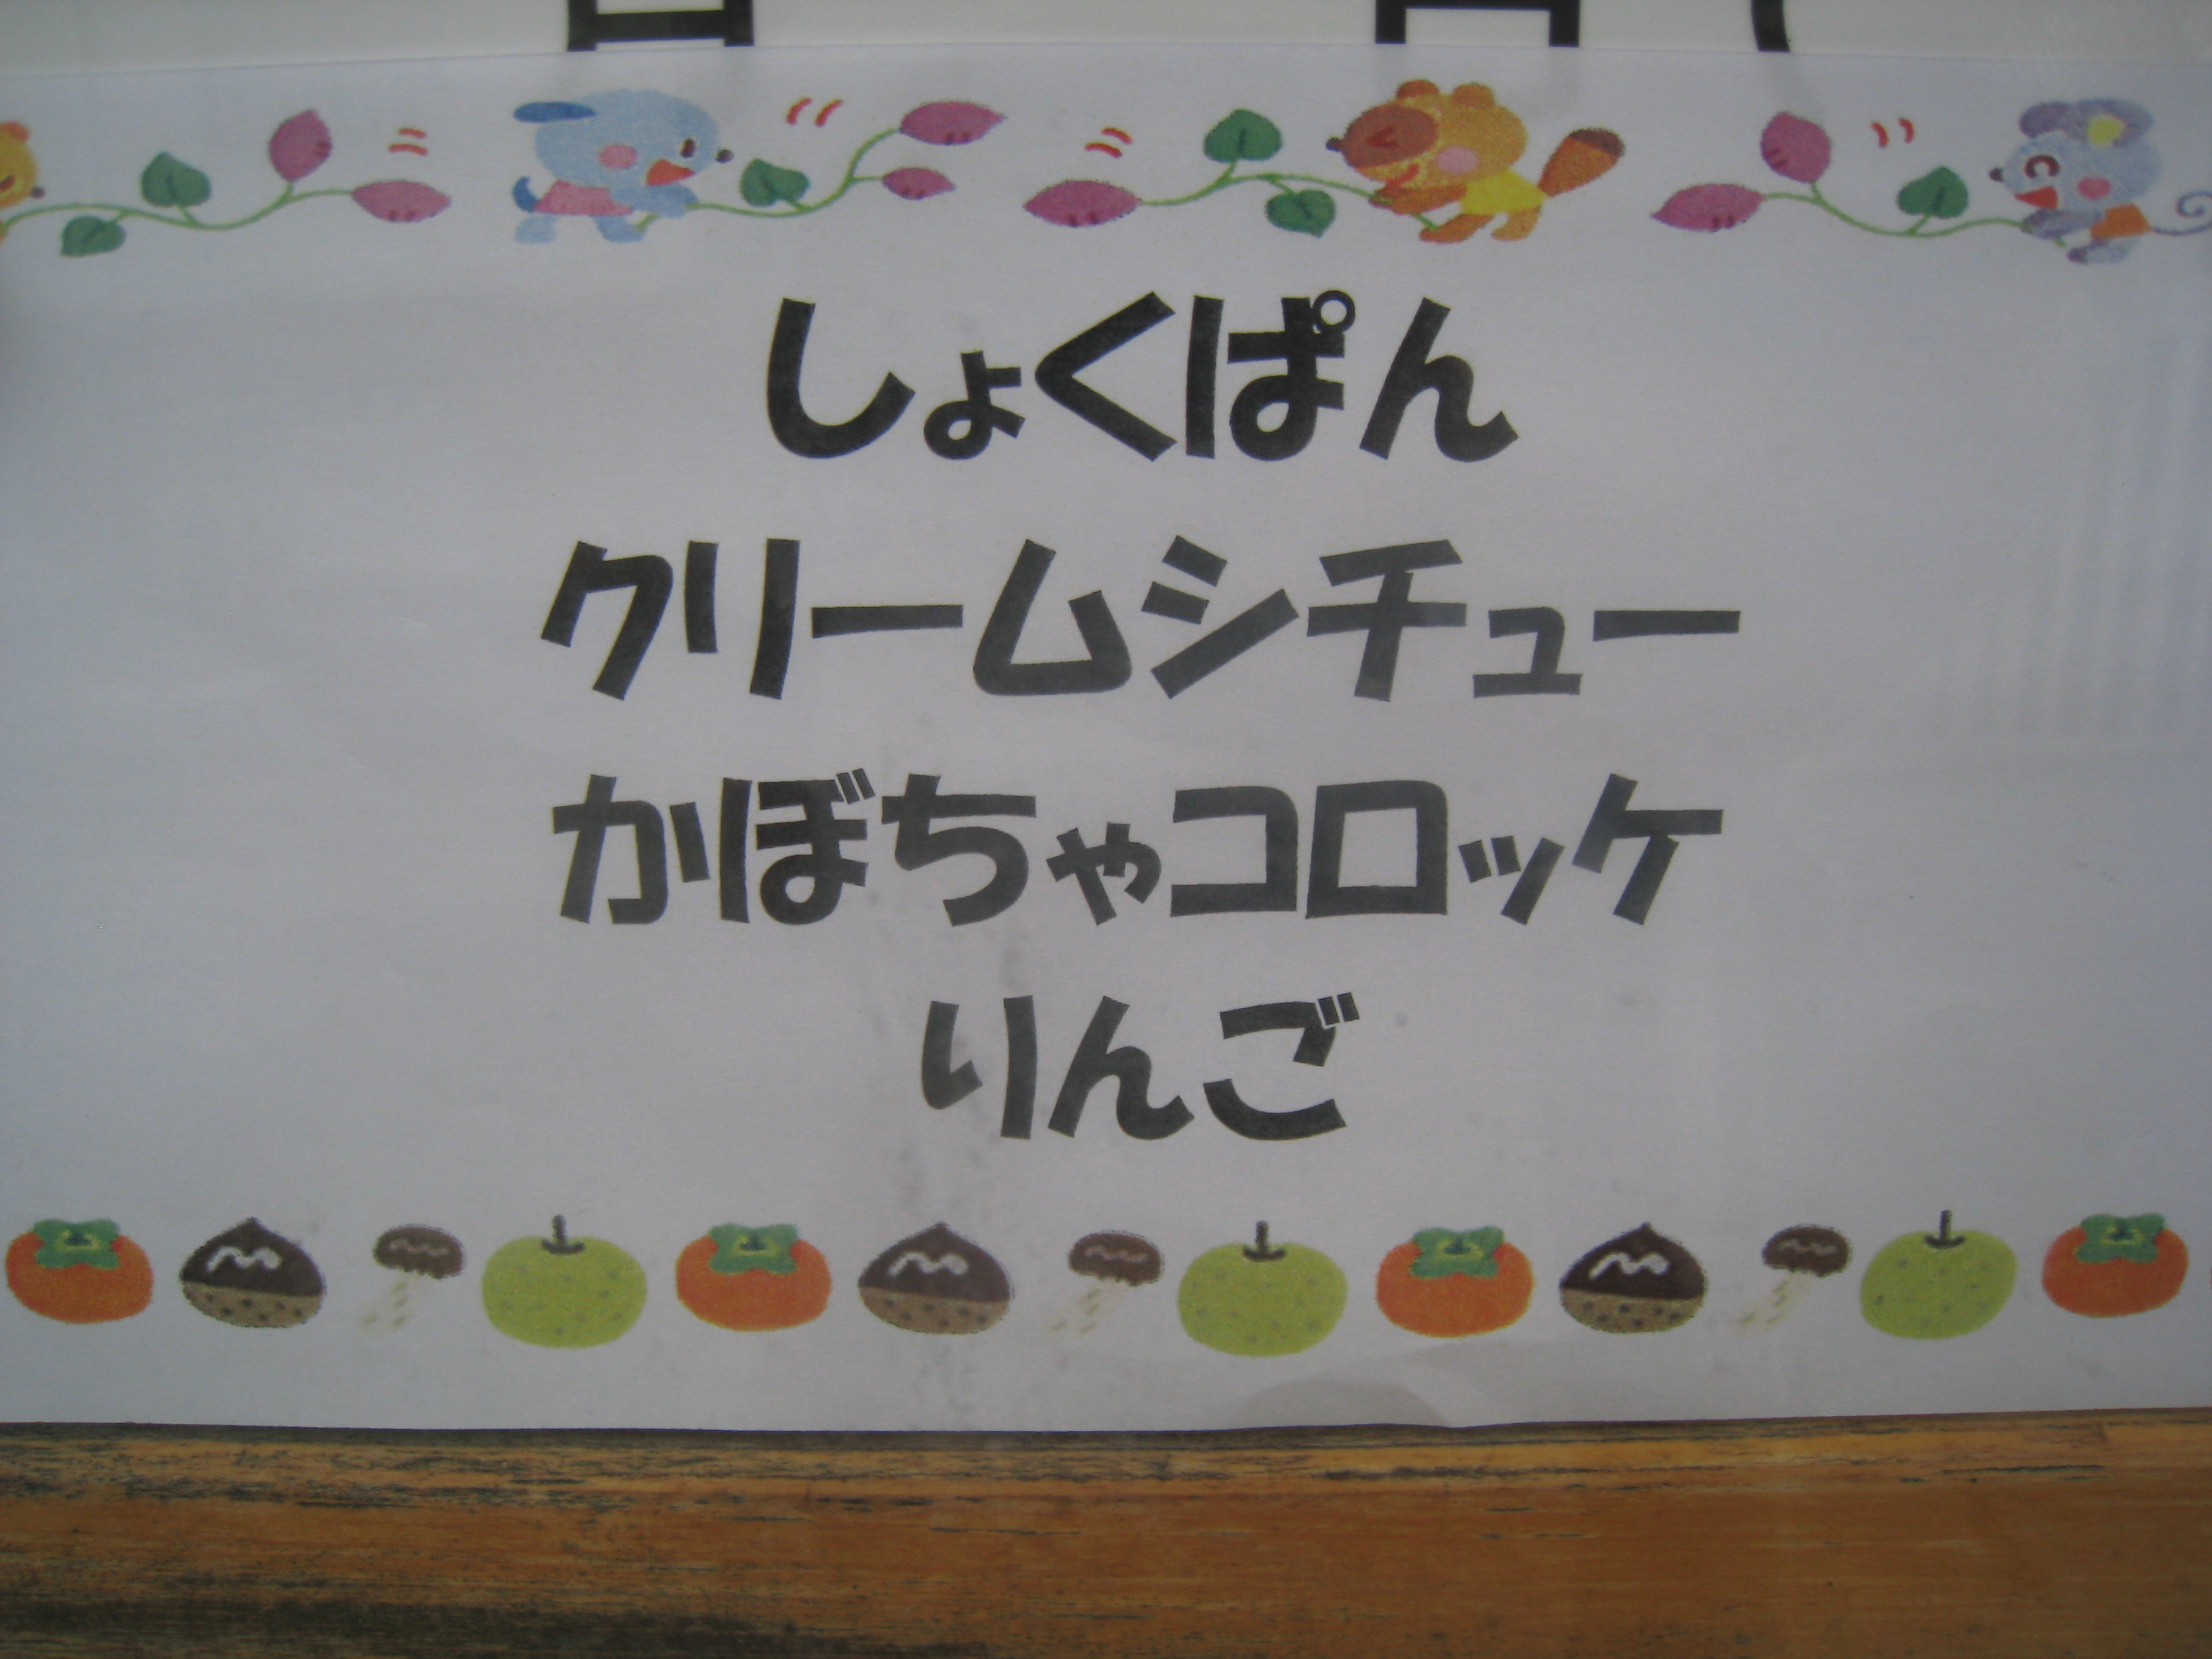 しょくぱん
クリームシチュー
かぼちゃコロッケ
りんご